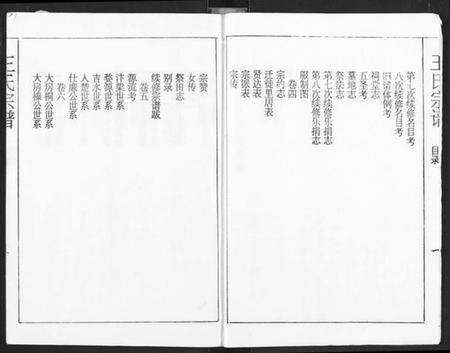 王氏宗譜
目錄
一
第七次续修名目考
八次续修名目考
旧谱体例考
祠堂志
五圣考
墓地志
祭法志
第七次续修乐捐志
第八次续修乐捐志
服制图
卷四
宗约志
迁徙里居表
贤达表
宗派表
宗传
宗赞
女传
祭田志
别录
续修宗谱跋
卷五
源流考
汴梁世系
婺源世系
吉水世系
入楚世系
仕廉公世系
卷六
大房桐公世系
大房榜公世系
王氏宗譜